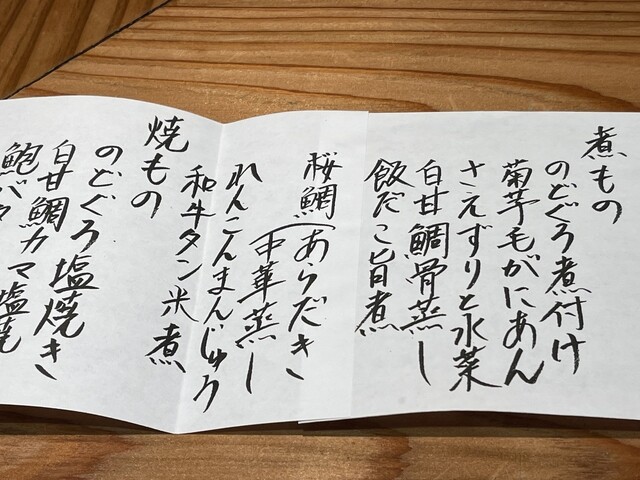 煮もの
のどぐろ煮付け
菊芋毛がにあん
さえずりと水菜
白甘鯛骨蒸し
飯だこ旨煮
桜鯛(あらだき
中華蒸し
れんこんまんじゅう
和牛タン米煮
焼もの
のどぐろ塩焼き
白甘鯛カマ塩焼き
鮑バタ